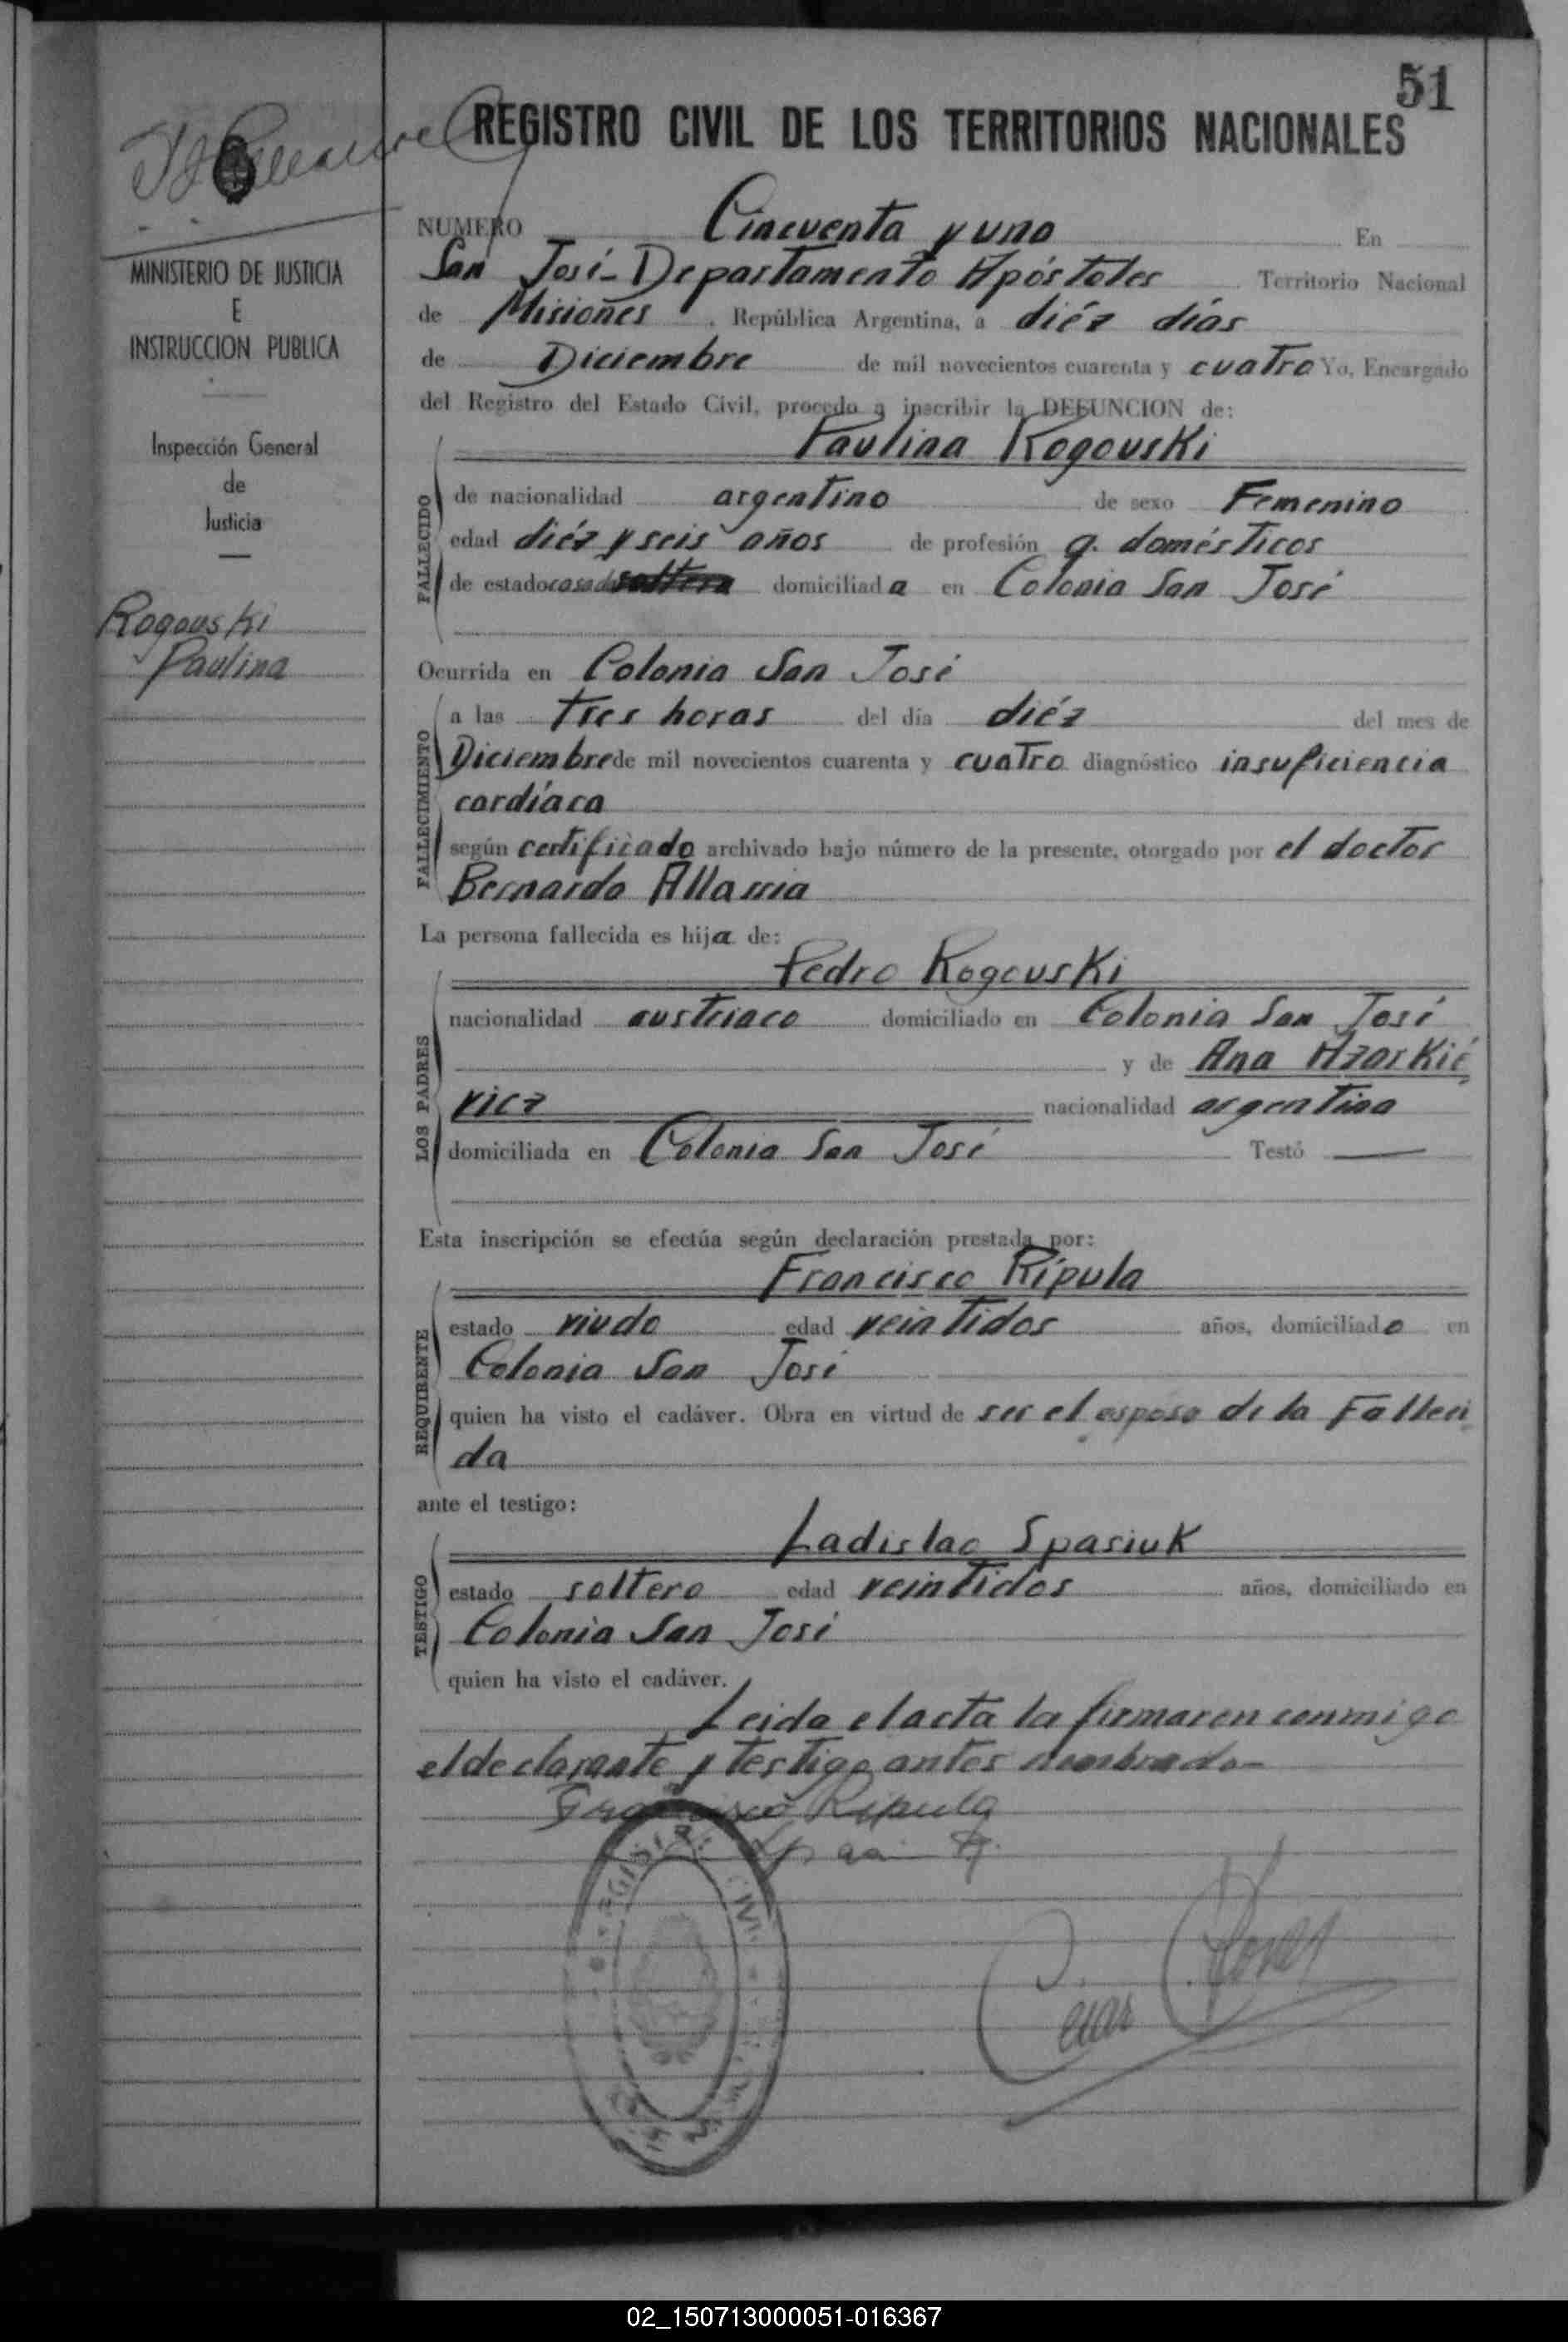 51
REGISTRO CIVIL DE LOS TERRITORIOS NACIONALES
MINISTERIO DE JUSTICIA
E
INSTRUCCION PUBLICA
Inspección General
de
Justicia
Rogouski
Paulina
NUMERO Cincuenta y uno En
San José - Departamento Apóstoles Territorio Nacional
de Misiones, República Argentina, a diéz días
de Diciembre de mil novecientos cuarenta y cuatro Yo, Encargado
del Registro del Estado Civil, procedo a inscribir la DEFUNCION de:
Paulina Rogouski
FALLECIDO
de nacionalidad argentino de sexo Femenino
edad diéz y seis años de profesión q. domésticos
de estado casada soltera domiciliada en Colonia San José
Ocurrida en Colonia San José
FALLECIMIENTO
a las tres horas del día diéz del mes de
Diciembre de mil novecientos cuarenta y cuatro diagnóstico insuficiencia
cardíaca
según certificado archivado bajo número de la presente, otorgado por el doctor
Bernardo
La persona fallecida es hija de:
Pedro Rogouski
LOS PADRES
nacionalidad austriaco domiciliado en Colonia San José
y de Ana Azarkié
vicz nacionalidad argentina
domiciliada en Colonia San José Testó —
Esta inscripción se efectúa según declaración prestada por:
Francisco Rípula
REQUIRENTE
estado viudo edad veintidos años, domiciliado en
Colonia San José
quien ha visto el cadáver. Obra en virtud de ser el esposo de la Falleci
da
ante el testigo:
Ladislao Spasiuk
TESTIGO
estado soltero edad veintidos años, domiciliado en
Colonia San José
quien ha visto el cadáver.
Leida el acta la firmaron conmigo
el declarante y testigo antes nombrado-
Francisco Ripula
REGISTRO CIVIL
02_150713000051-016367